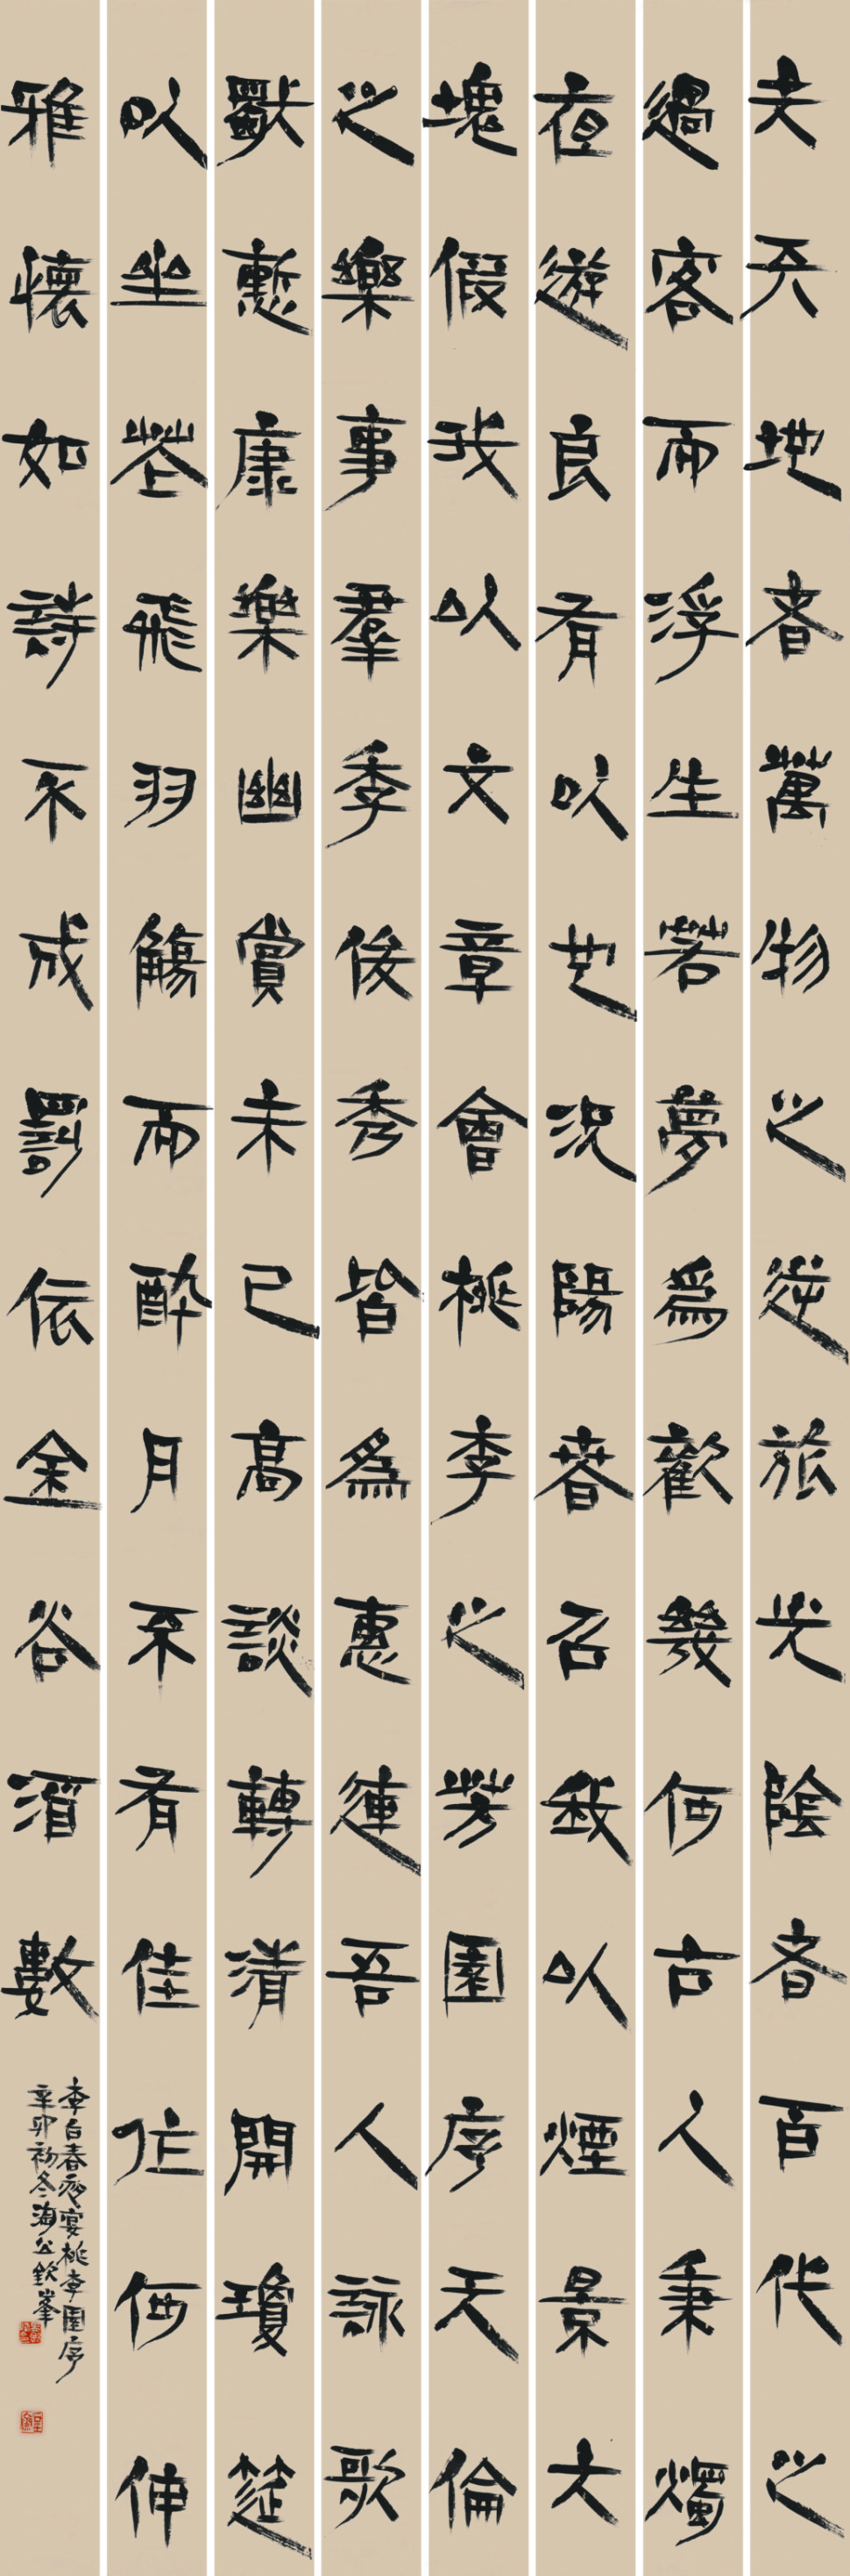 夫天地者萬物之逆旅光陰者百代之
過客而浮生若夢爲歡幾何古人秉燭
夜遊良有以也況陽春召我以煙景大
塊假我以文章會桃李之芳園序天倫
之樂事羣季俊秀皆爲惠連吾人詠歌
獨慙康樂幽賞未已高談轉清開瓊筵
以坐花飛羽觴而醉月不有佳作何伸
雅懷如詩不成罰依金谷酒數
李白春夜宴桃李園序
辛卯初冬海公欽峯